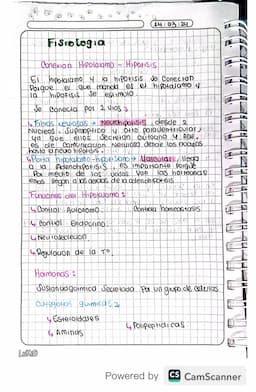 14/03/24
Fisiologia
Conexion Hipotalamo - Hipofisis
El hipotalamo y la hipofisis se conectan
Porque el que manda es el hipotalamo y
la hipofisis se estimula
Se conecta por 2 vias:
↳ Fibras nerviosas → Neurohipofisis, desde 2
Nucleos: Supraoptico y otro paraventricular,
ya que ellos secretan oxitocina y ADH,
es de comunicacion nerviosa desde los nucleos
hasta la neurohipofisis
↳ Porta hipotalamo-hipofisiario → Vascular, llega
a la adenohipofisis, es importante porque
Por medio de los vasos van las hormonas
Funciones del Hipotalamo:
↳ Control Autonomo Control homeostasis
↳ Control Endocrino
↳ Neurosecrecion
↳ Regulacion de la T°
Hormonas:
Sustancia quimica Secretada por un grupo de celulas
Categorias quimicas:
↳ Esteroidales ↳ Polipeptidicas
↳ Aminas
Powered by CS CamScanner